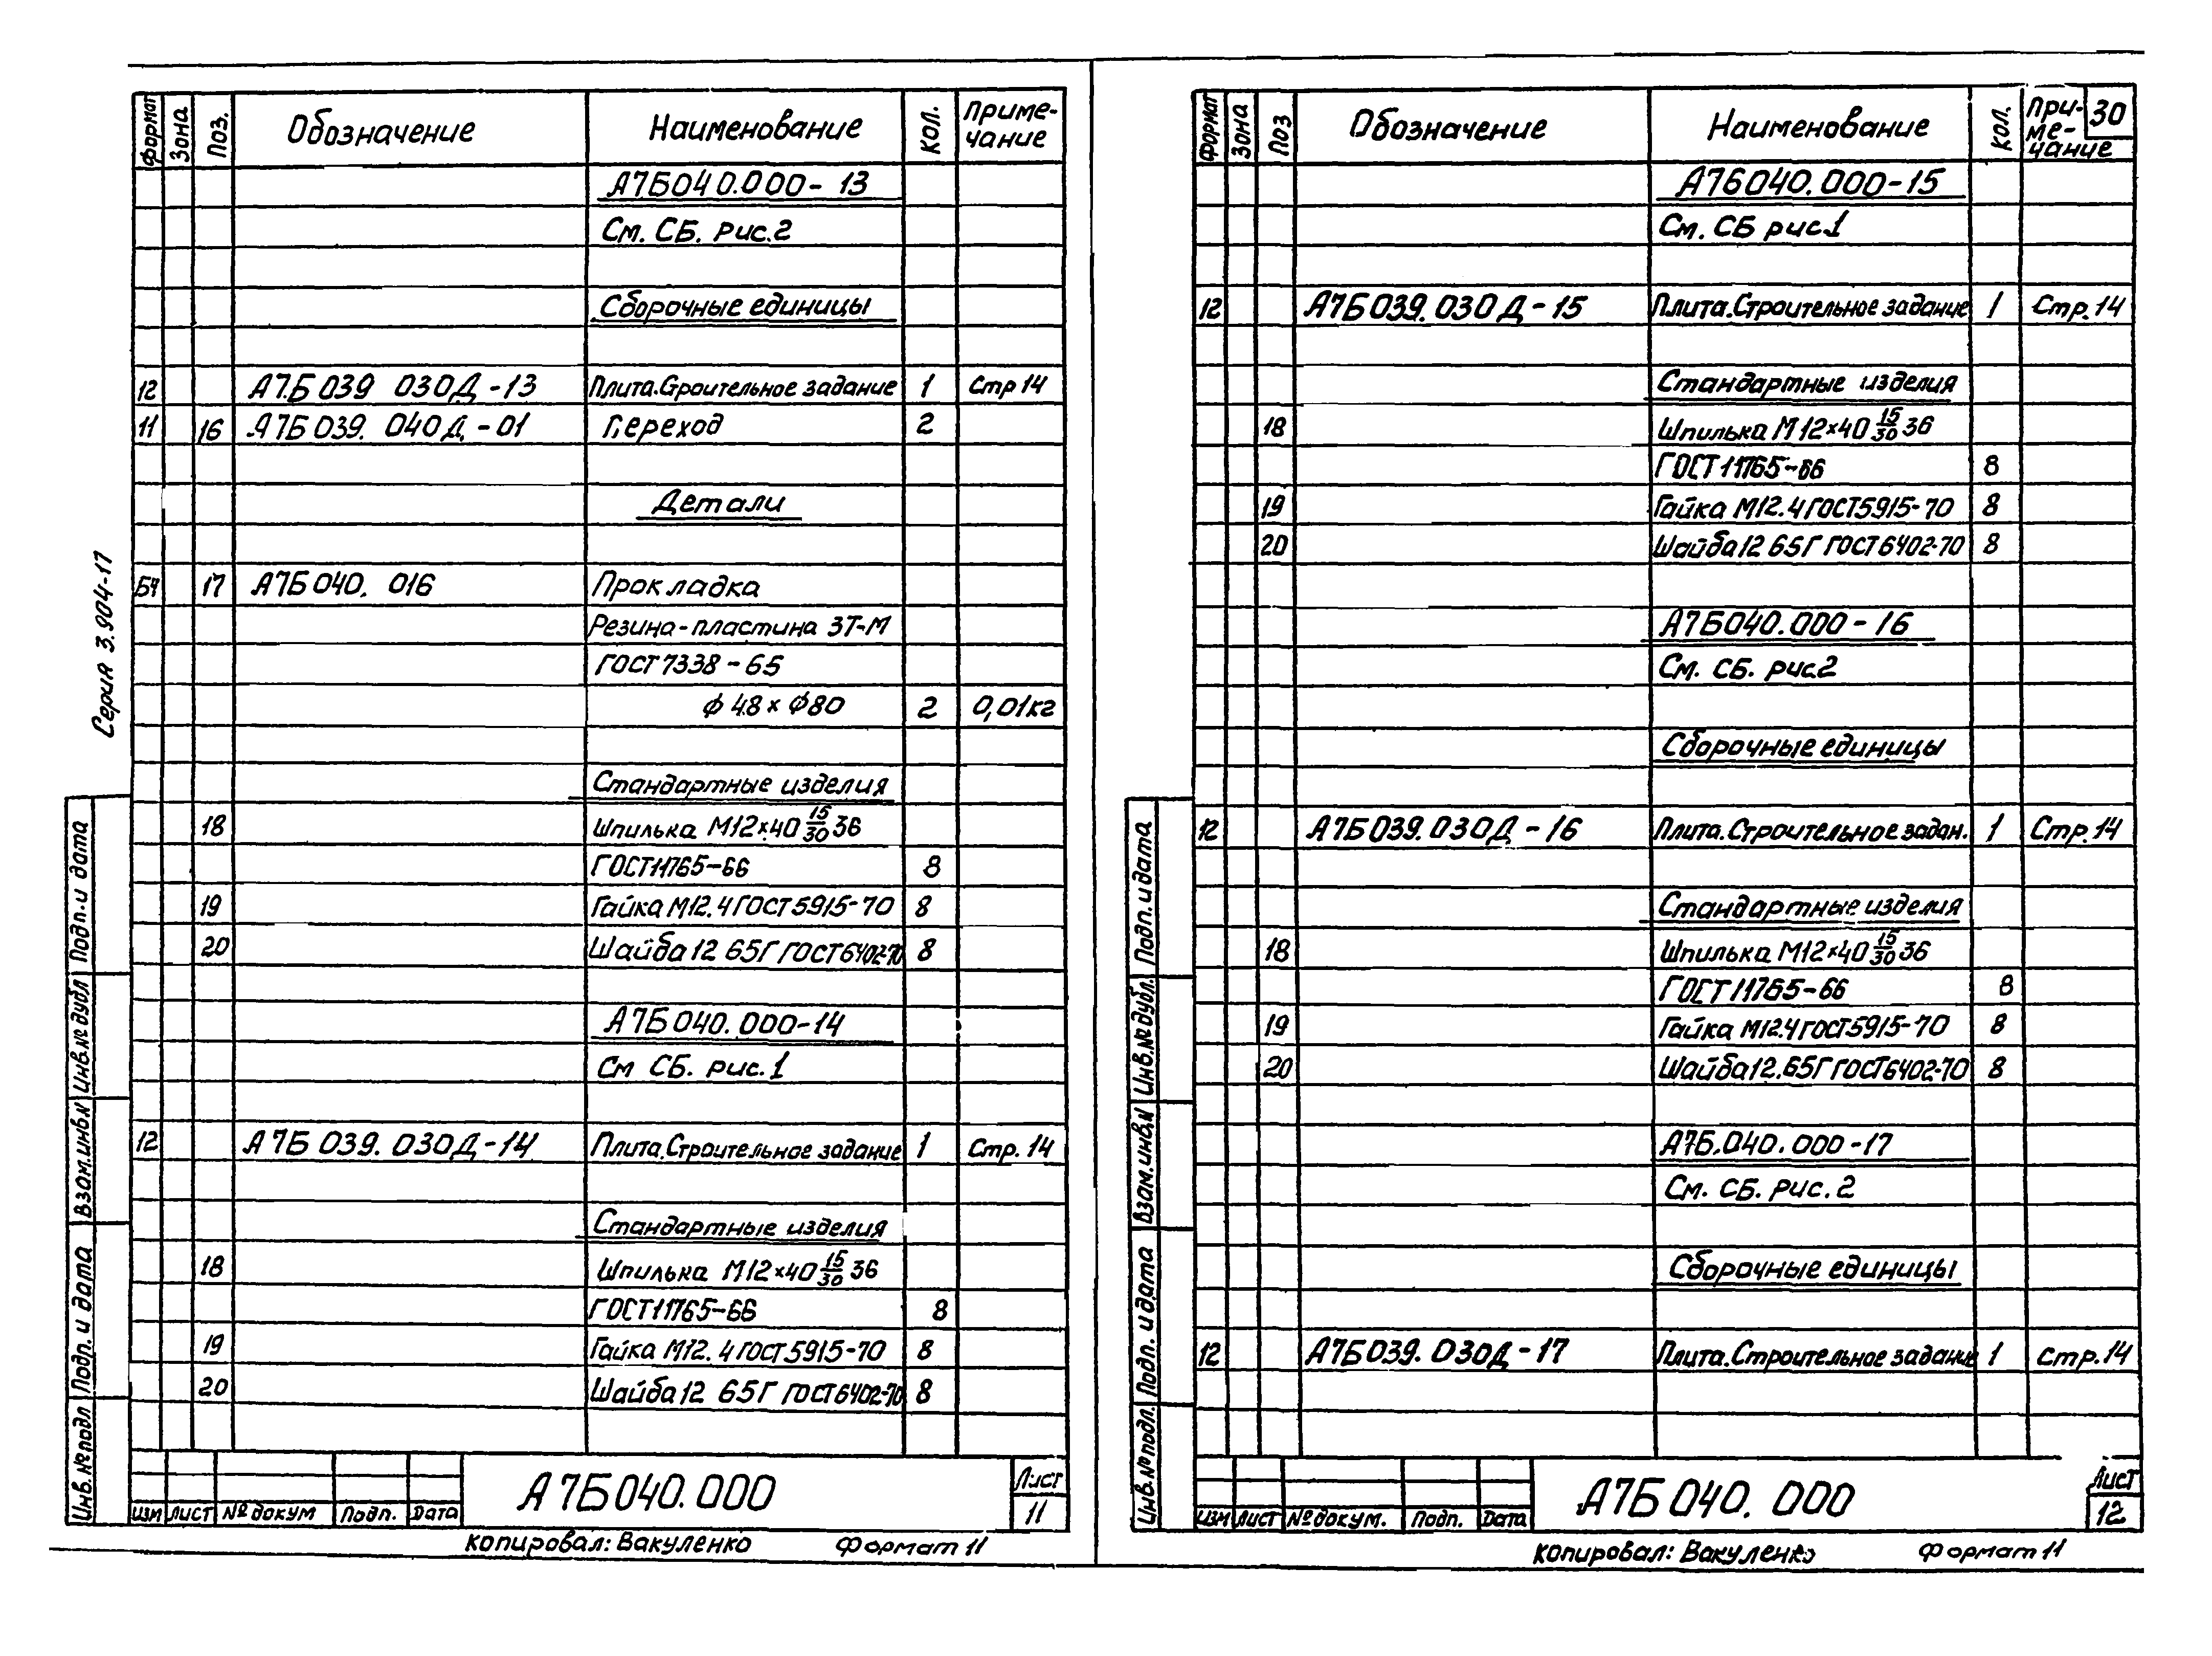 Формат Зона Поз. Обозначение Наименование Кол. Примечание
А7Б040.000-13
См. СБ. рис.2
Сборочные единицы
12 А7.Б039 030Д-13 Плита.Сроительное задание 1 Стр 14
11 16 А7Б039. 040Д-01 Переход 2
Детали
БЧ 17 А7Б040. 016 Прокладка
Резина-пластина 3Т-М
ГОСТ 7338-65
ф 48 × ф80 2 0,01кг
Стандартные изделия
18 Шпилька М12×40 15/30 36
ГОСТ11765-66 8
19 Гайка М12.4 ГОСТ5915-70 8
20 Шайба 12 65Г ГОСТ6402-70 8
А7Б040.000-14
См СБ. рис.1
12 А7Б039.030Д-14 Плита.Строительное задание 1 Стр.14
Стандартные изделия
18 Шпилька М12×40 15/30 36
ГОСТ11765-66 8
19 Гайка М12.4 ГОСТ5915-70 8
20 Шайба 12 65Г ГОСТ6402-70 8
А7Б040.000
Лист
11
Изм Лист № докум Подп. Дата
Копировал: Вакуленко Формат 11
Серия 3.904-17
Подп. и дата
Инв.№ дубл
Взам.инв.№
Подп. и дата
Инв.№ подл
30
Формат Зона Поз Обозначение Наименование Кол. При-
ме-
чание
А7Б040.000-15
См. СБ рис.1
12 А7Б039.030Д-15 Плита.Строительное задание 1 Стр.14
Стандартные изделия
18 Шпилька М12×40 15/30 36
ГОСТ11765-66 8
19 Гайка М12.4 ГОСТ5915-70 8
20 Шайба 12 65Г ГОСТ6402-70 8
А7Б040.000-16
См. СБ. рис.2
Сборочные единицы
12 А7Б039.030Д-16 Плита.Строительное задан. 1 Стр.14
Стандартные изделия
18 Шпилька М12×40 15/30 36
ГОСТ11765-66 8
19 Гайка М12.4 ГОСТ5915-70 8
20 Шайба 12.65Г ГОСТ6402-70 8
А7Б.040.000-17
См. СБ. рис.2
Сборочные единицы
12 А7Б039.030Д-17 Плита.Строительное задание 1 Стр.14
А7Б040.000
Лист
12
Изм Лист № докум. Подп. Дата
Копировал: Вакуленко Формат 11
Подп. и дата
Инв.№ дубл.
Взам.инв.№
Подп. и дата
Инв.№ подл.